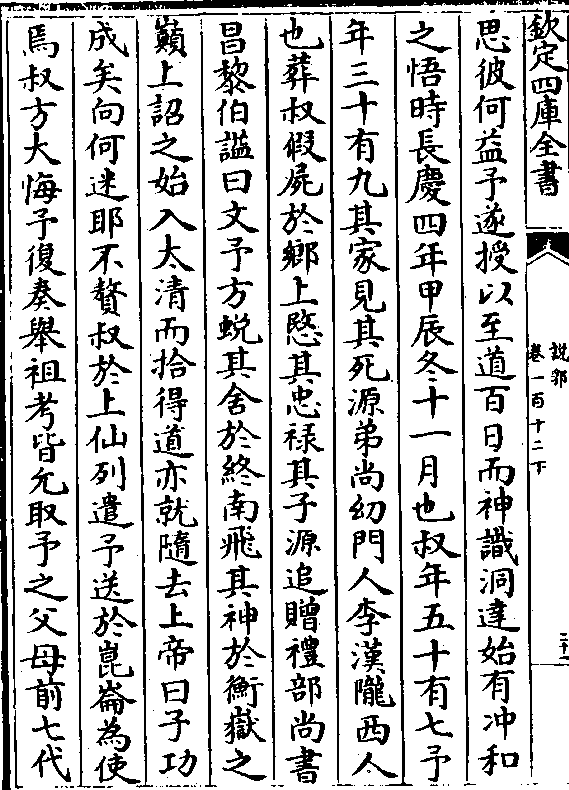 欽定四庫全書
說郛
卷一百十二下
思彼何益予遂授以至道百日而神識洞達始有冲和
之悟時長慶四年甲辰冬十一月也叔年五十有七予
年三十有九其家見其死源弟尚幼門人李漢隴西人
也葬叔假屍於鄉上愍其忠祿其子源追贈禮部尚書
昌黎伯諡曰文予方蜕其舍於終南飛其神於衡嶽之
巔上詔之始入太清而拾得道亦就隨去上帝曰子功
成矣向何迷耶不贅叔於上仙列遣予送於崑崙為使
焉叔方大悔予復奏舉祖考皆允取予之父母前七代